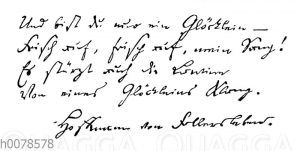 Und bist du nur ein Glöcklein —
Frisch auf, frisch auf, mein Sang!
Es stürzt auch die Lawine
Von eines Glöckleins Klang.
Hoffmann von Fallersleben.
QUAGGA
h0078578